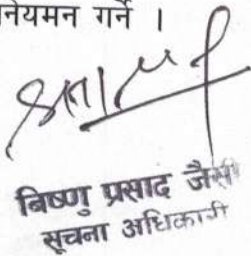 नियमन गर्ने ।
बिष्णु प्रसाद जैसी
सूचना अधिकारी